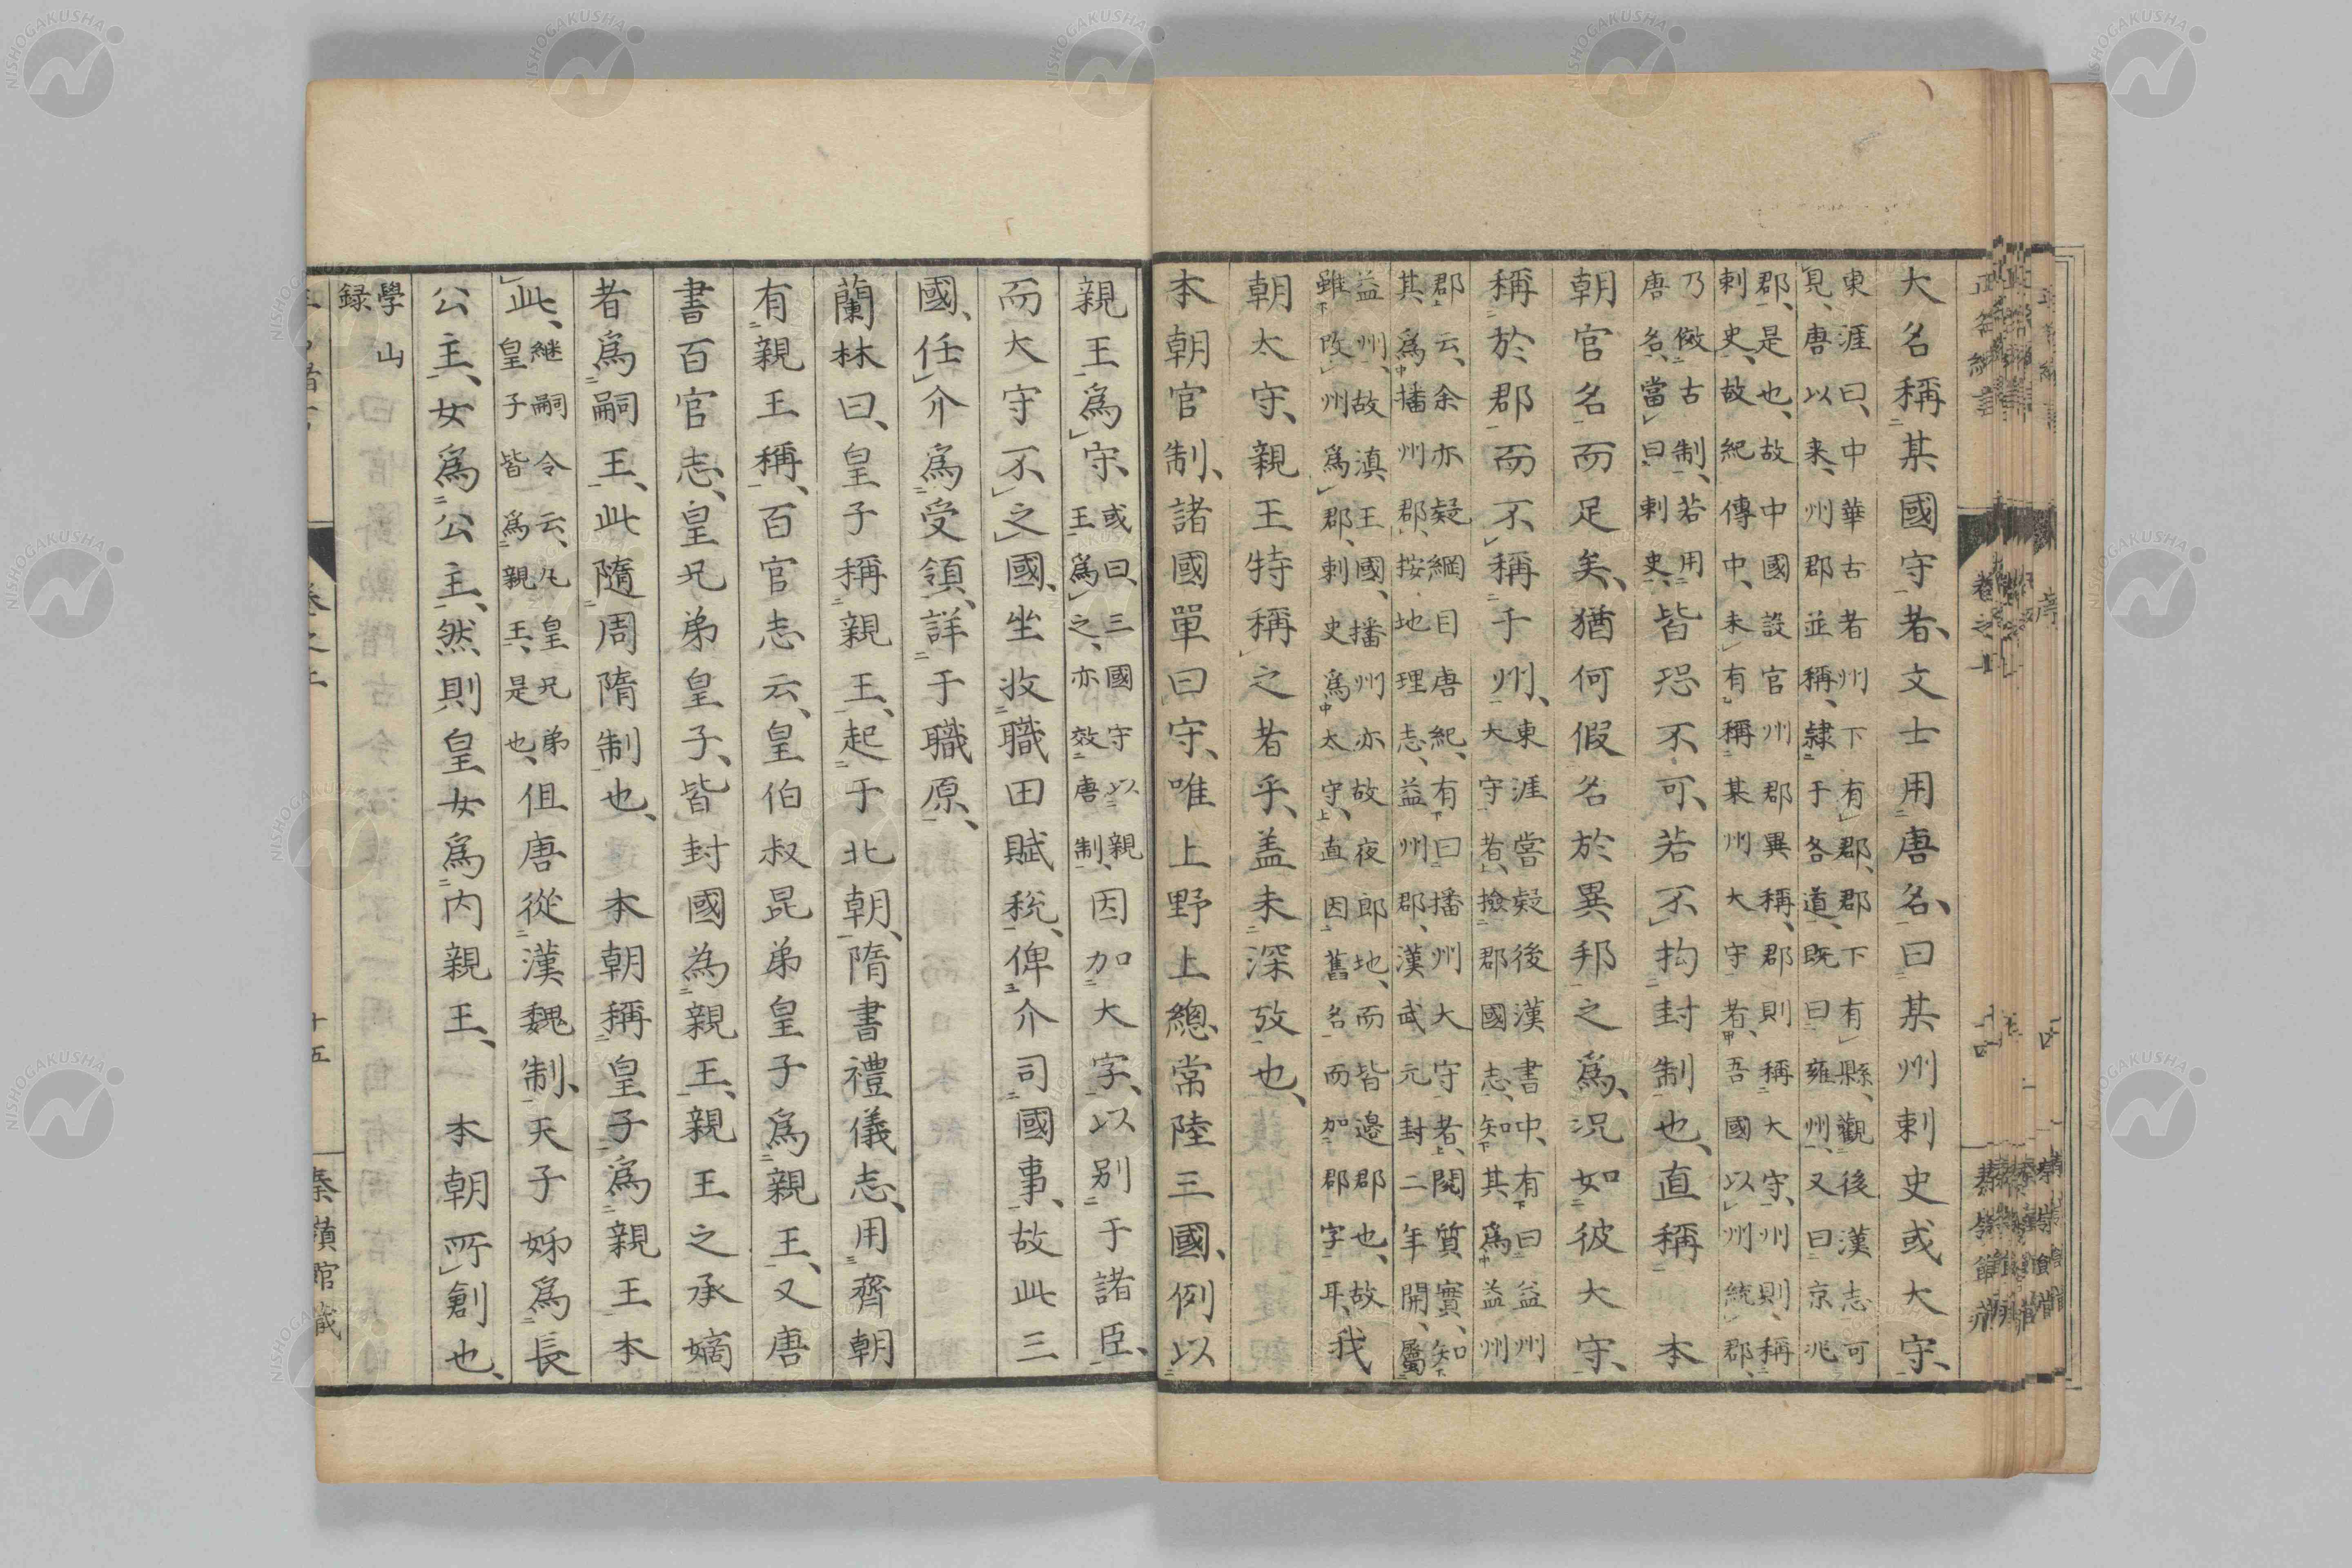 大名稱某國守者、文士用唐名、曰某州刺史或大守、
東涯曰、中華古者州下有郡、郡下有縣、觀後漢志可
見、唐以来、州郡並稱、隷于各道、既曰雍州、又曰京兆
郡、是也、故中國設官州郡異稱、郡則稱大守、州則稱
刺史、故紀傳中、未有稱某州大守者、吾國以州統郡、
乃倣古制、若用
唐名、當曰刺史、皆恐不可、若不拘封制也、直稱 本
朝官名而足矣、猶何假名於異邦之為、況如彼大守、
稱於郡而不稱于州、
東涯嘗疑後漢書中、有曰益州
大守者、撿郡國志、知其為益州
郡云、余亦疑綱目唐紀、有曰播州大守者、閱質實、知
其為播州郡、按地理志、益州郡、漢武元封二年開、屬
益州、故滇王國、播州亦故夜郎地、而皆邊郡也、故
雖改州為郡、刺史為太守、直因舊名而加郡字耳、我
朝太守、親王特稱之者乎、盖未深攷也、
本朝官制、諸國單曰守、唯上野上總常陸三國、例以
親王為守、
或曰、三國守以親
王為之、亦效唐制、因加大字、以別于諸臣、
而大守不之國、坐收職田賦税、俾介司國事、故此三
國、任介為受領、詳于職原、
蘭林曰、皇子稱親王、起于北朝、隋書禮儀志、用齊朝
有親王稱、百官志云、皇伯叔昆弟皇子為親王、又唐
書百官志、皇兄弟皇子、皆封國為親王、親王之承嫡
者為嗣王、此隨周隋制也、 本朝稱皇子為親王本
此、
継嗣令云、凡皇兄弟
皇子皆為親王、是也、但唐從漢魏制、天子姊為長
公主、女為公主、然則皇女為内親王、 本朝所創也、
學山
録
卷之上
十五